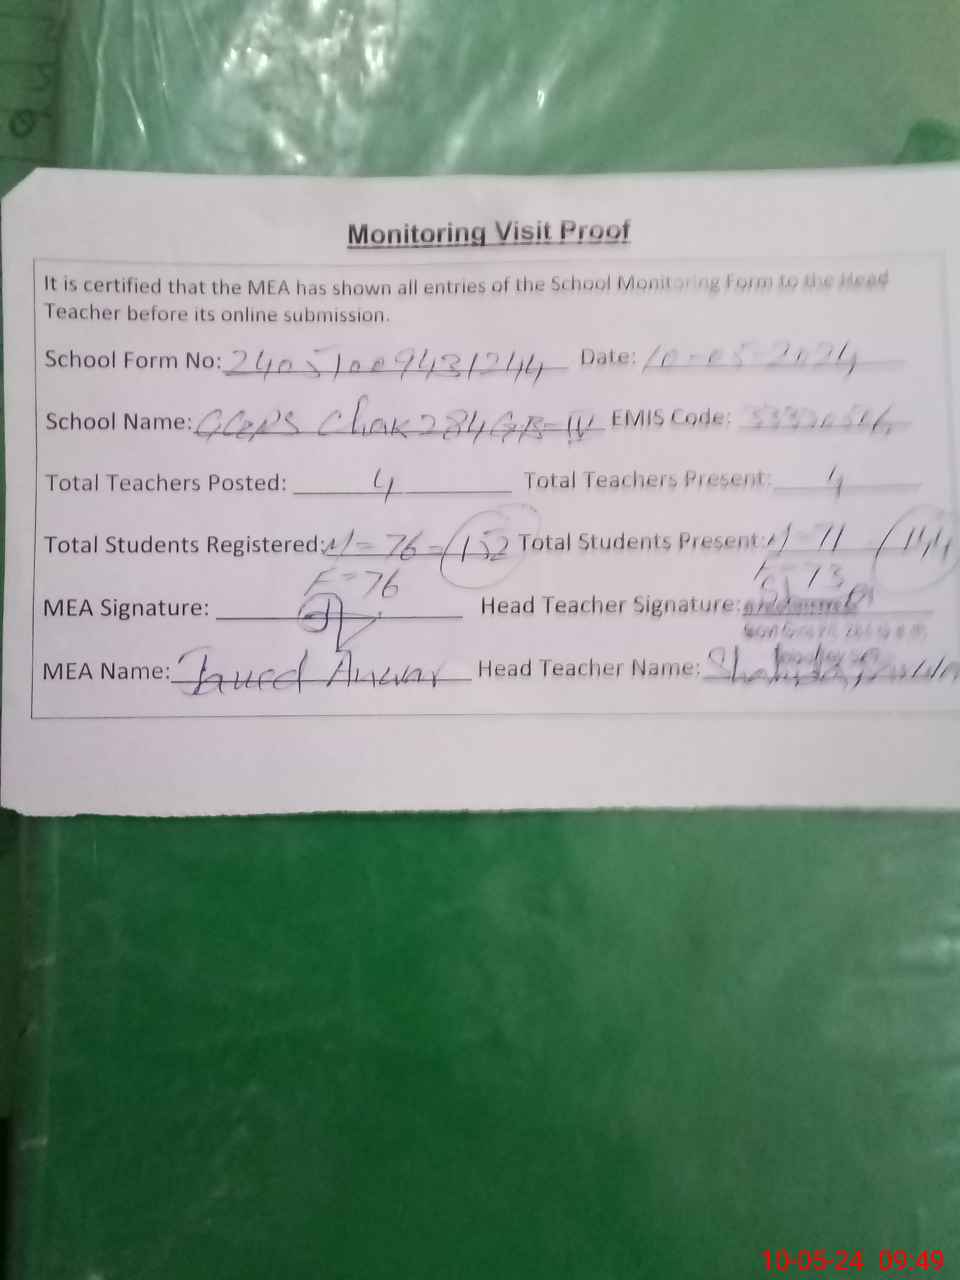 Monitoring Visit Proof
It is certified that the MEA has shown all entries of the School Monitoring Form to the Head
Teacher before its online submission.
School Form No: 24051009431244 Date: 10-05-2024
School Name: Chak 284 GB-IV EMIS Code:
Total Teachers Posted: 4 Total Teachers Present: 4
Total Students Registered: = 76 = 152 Total Students Present: = 71 144
F = 76 F = 73
MEA Signature: Head Teacher Signature:
MEA Name: Javed Anwar Head Teacher Name:
10-05-24 09:49